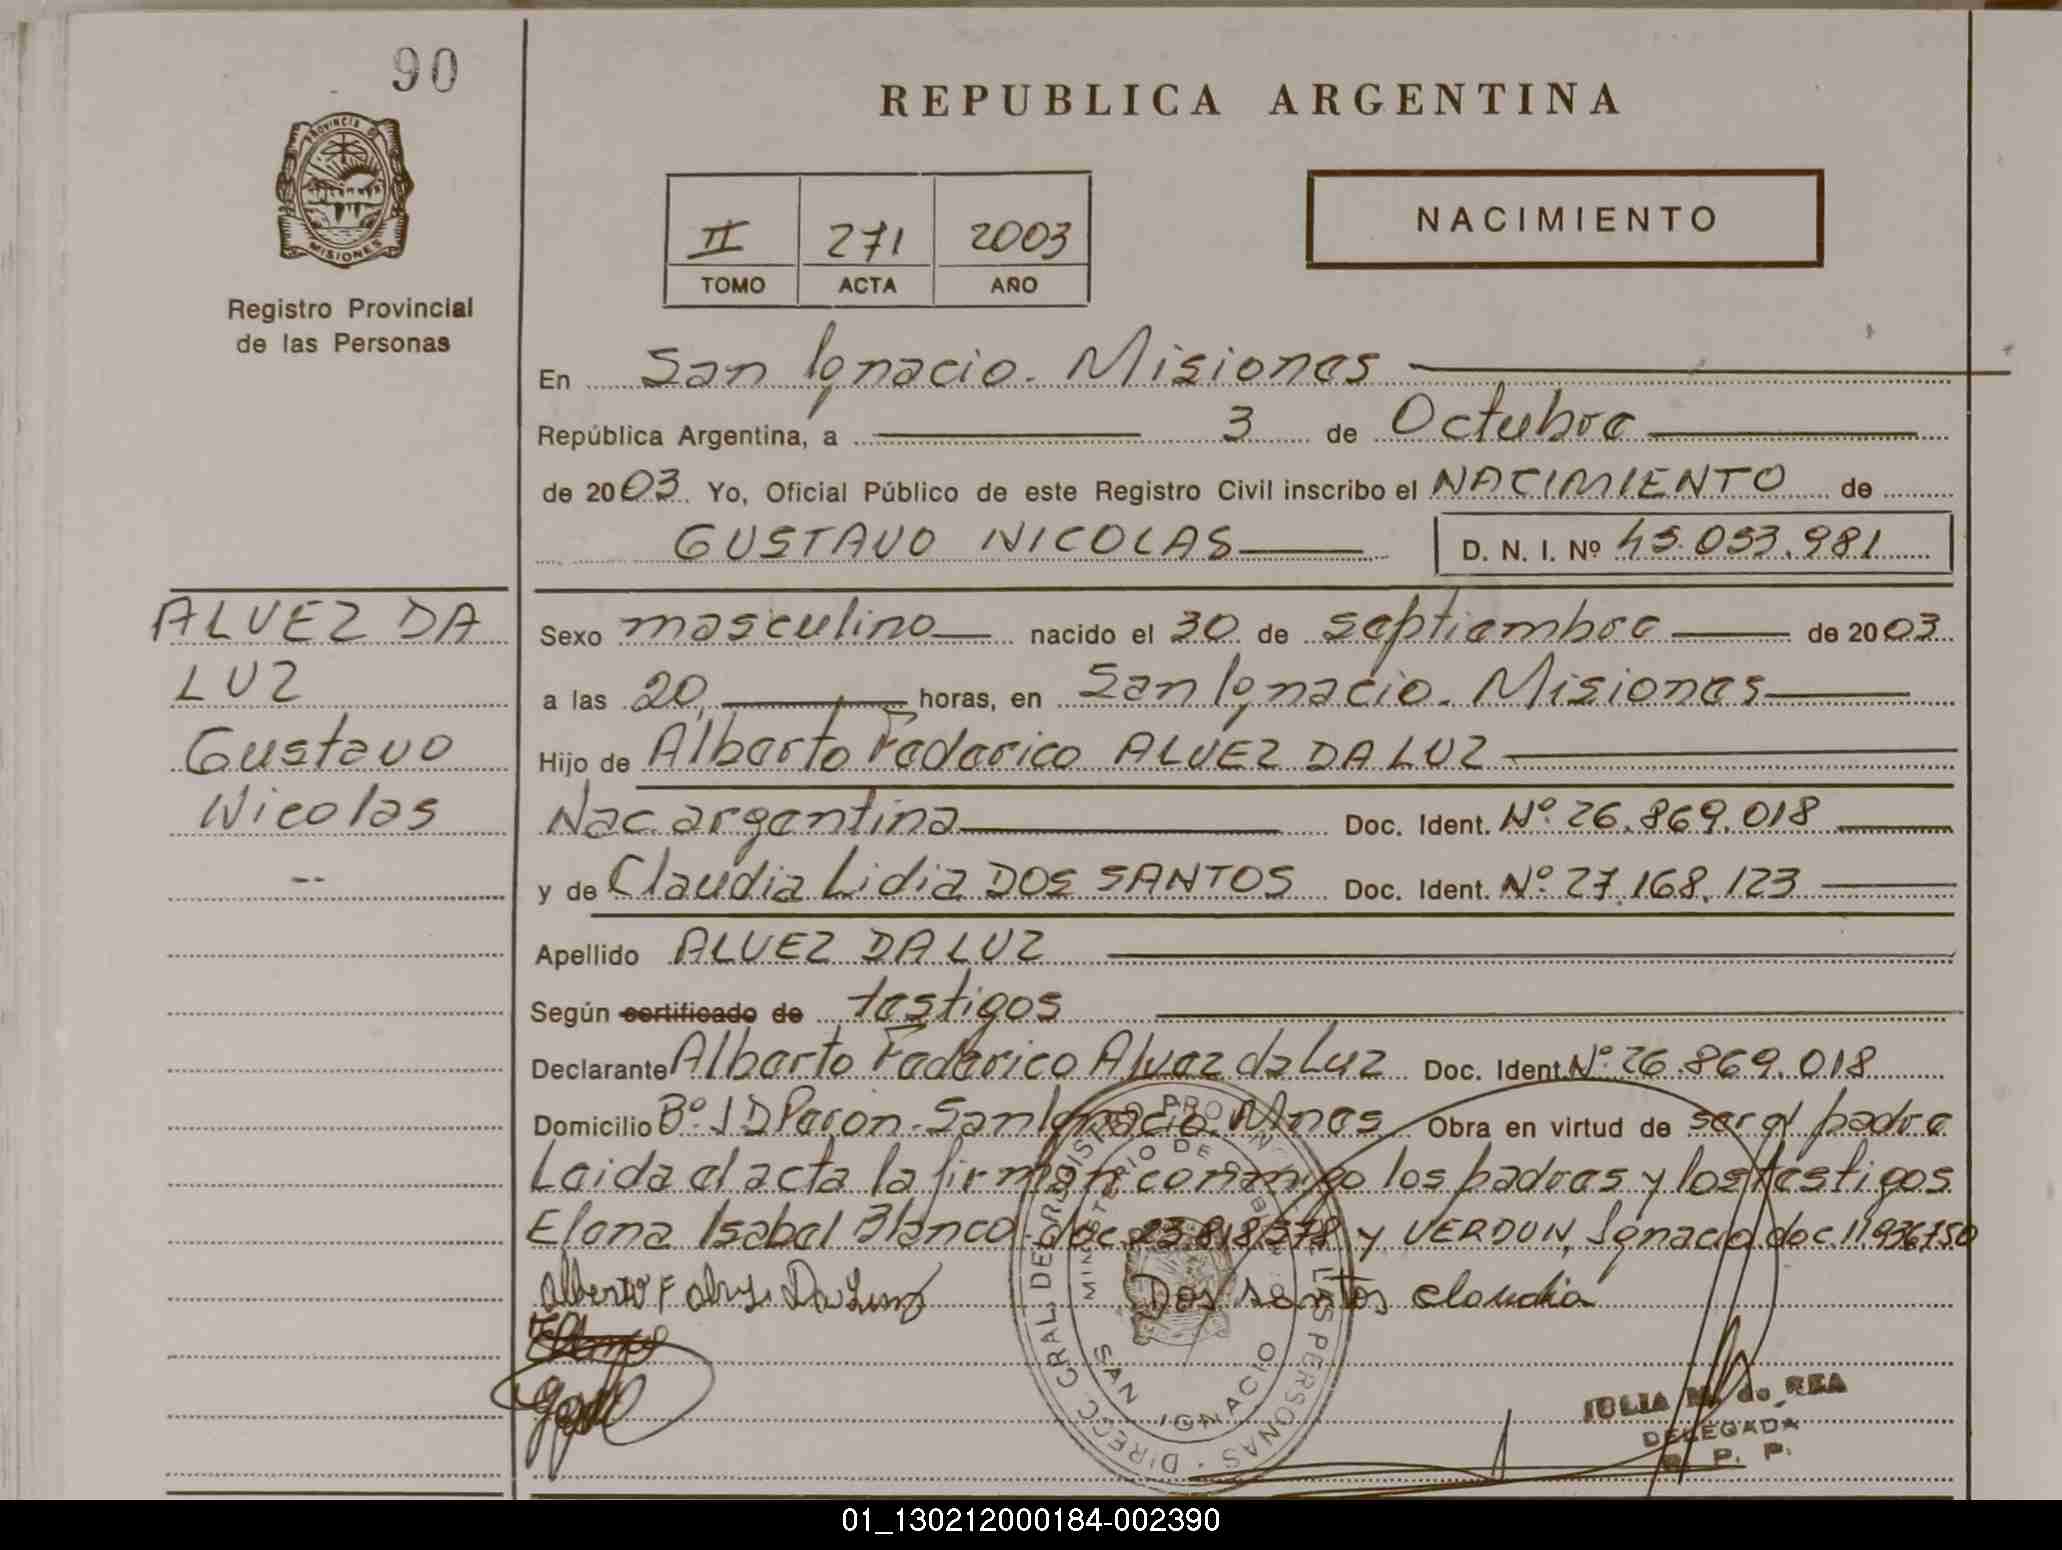 90
PROVINCIA DE
MISIONES
Registro Provincial
de las Personas
REPUBLICA ARGENTINA
II 271 2003
TOMO ACTA AÑO
NACIMIENTO
En San Ignacio. Misiones
República Argentina, a 3 de Octubre
de 2003 Yo, Oficial Público de este Registro Civil inscribo el NACIMIENTO de
GUSTAVO NICOLAS D. N. I. Nº 45.053.981
ALVEZ DA
LUZ
Gustavo
Nicolas
--
Sexo masculino nacido el 30 de septiembre de 2003
a las 20, horas, en San Ignacio. Misiones
Hijo de Alberto Federico ALVEZ DA LUZ
Nac. argentina Doc. Ident. Nº 26.869.018
y de Claudia Lidia DOS SANTOS Doc. Ident. Nº 27.168.123
Apellido ALVEZ DA LUZ
Según certificado de testigos
Declarante Alberto Federico Alvez da Luz Doc. Ident. Nº 26.869.018
Domicilio Bº J D Peron - San Ignacio. Mnes Obra en virtud de ser el padre
Leida el acta la firman conmigo los padres y los testigos
Elena Isabel Blanco doc 23.818.378 y VERDUN, Ignacio doc. 11.936.750
Dos santos claudia
DIRECC. GRAL. DEL REGISTRO PROVINCIAL DE LAS PERSONAS
MINISTERIO DE GOBIERNO
SAN IGNACIO
JULIA M. de REA
DELEGADA
R. P. P.
01_130212000184-002390